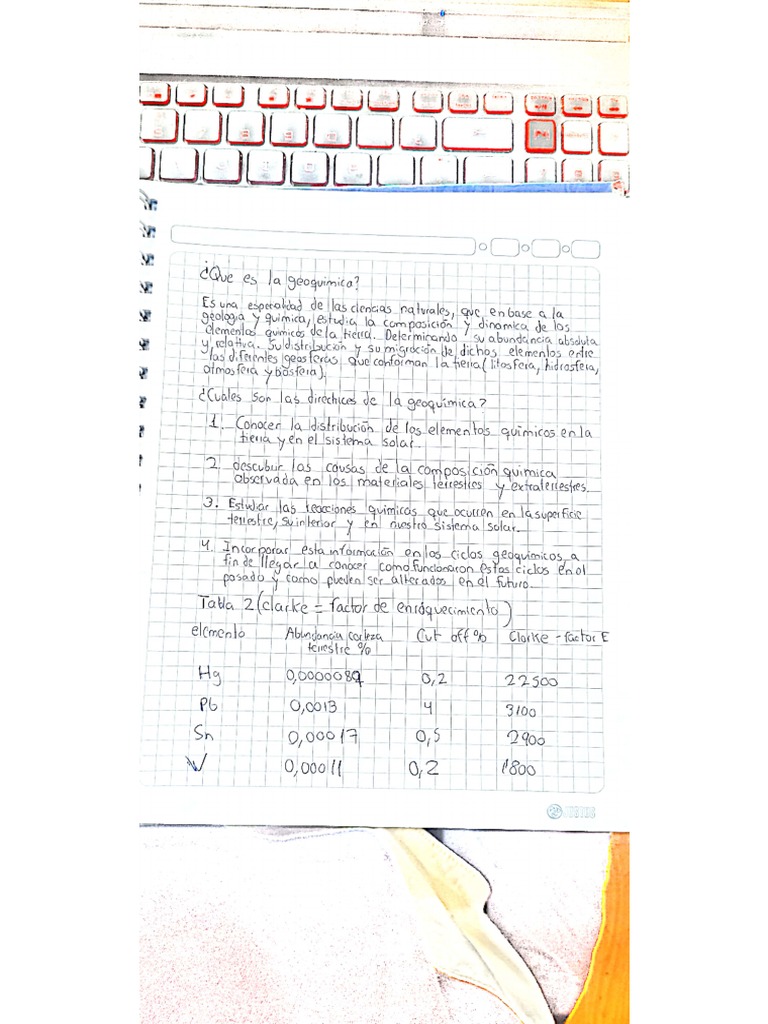 ¿Que es la geoquimica?
Es una especialidad de las ciencias naturales, que, en base a la
geologia y química, estudia la composición y dinamica de los
elementos químicos de la tierra. Determinando su abundancia absoluta
y relativa. Su distribución y su migración de dichos elementos entre
las diferentes geosferas que conforman la tierra (litosfera, hidrosfera,
atmosfera y biosfera).
¿Cuales son las directrices de la geoquimica?
1. Conocer la distribución de los elementos químicos en la
tierra y en el sistema solar.
2. descubrir las causas de la composición quimica
observada en los materiales terrestres y extraterrestres.
3. Estudiar las reacciones quimicas que ocurren en la superficie
terrestre, su interior y en nuestro sistema solar.
4. Incorporar esta información en los ciclos geoquimicos a
fin de llegar a conocer como funcionaron estos ciclos en el
pasado y como pueden ser alterados en el futuro.
Tabla 2 (clarke = factor de enriquecimiento)
elemento Abundancia corteza terrestre % Cut off % Clarke - factor E
Hg 0,0000089 0,2 22500
Pb 0,0013 4 3100
Sn 0,00017 0,5 2900
W 0,00011 0,2 1800